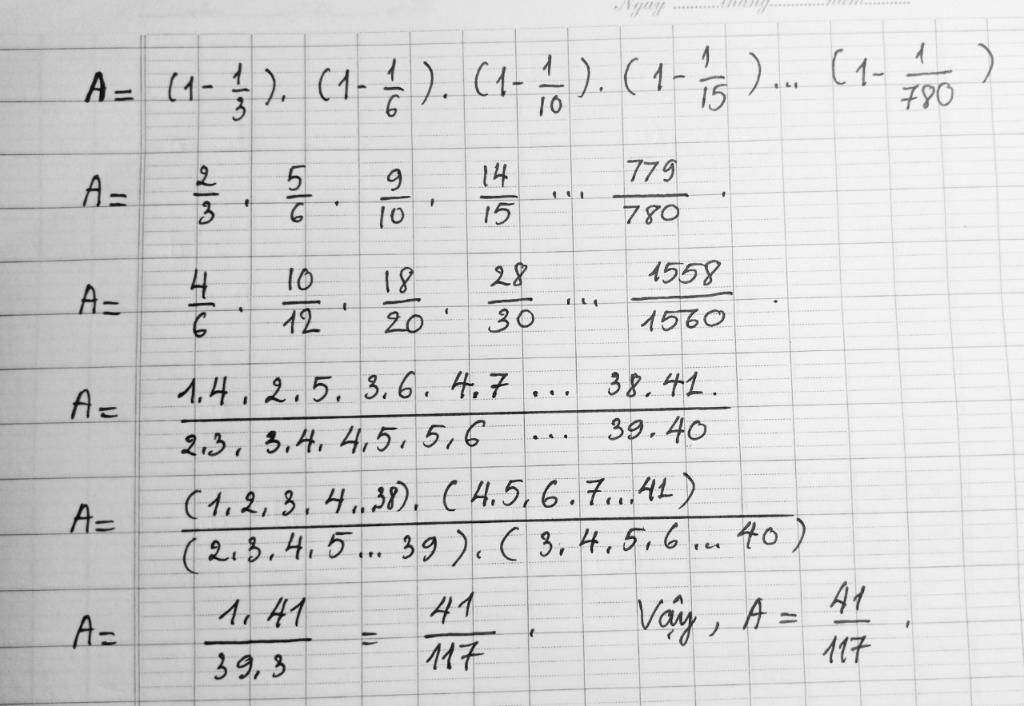 Ngày ............tháng............năm............
A = (1 - 1/3) . (1 - 1/6) . (1 - 1/10) . (1 - 1/15) ... (1 - 1/780)
A = 2/3 . 5/6 . 9/10 . 14/15 ... 779/780 .
A = 4/6 . 10/12 . 18/20 . 28/30 ... 1558/1560 .
A = 1.4 . 2.5 . 3.6 . 4.7 ... 38.41. / 2.3. 3.4. 4.5. 5.6 ... 39.40
A = (1.2.3.4..38).(4.5.6.7...41) / (2.3.4.5...39).(3.4.5.6...40)
A = 1.41 / 39.3 = 41/117 . Vậy, A = 41/117 .